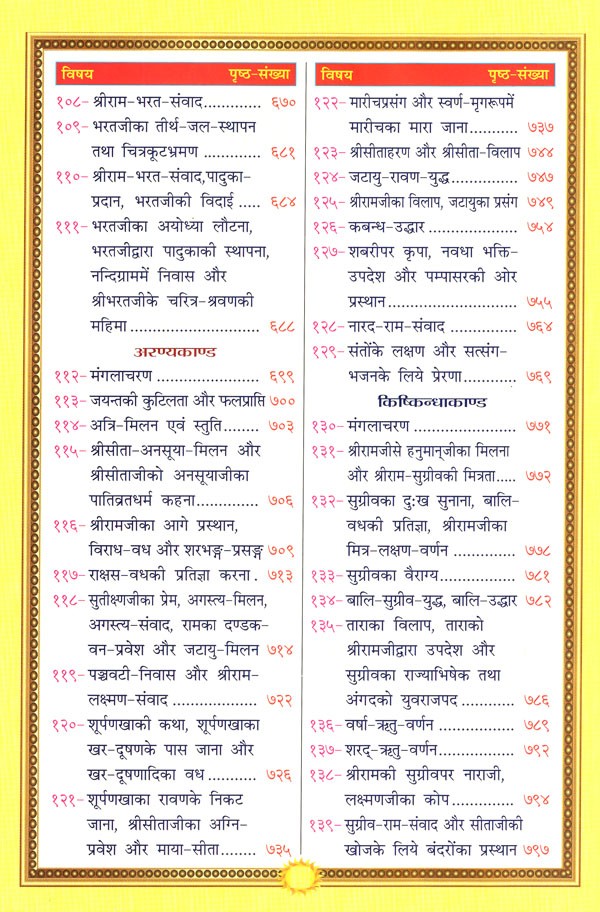 विषय पृष्ठ-संख्या
१०८- श्रीराम-भरत-संवाद............. ६७०
१०९- भरतजीका तीर्थ-जल-स्थापन
तथा चित्रकूटभ्रमण ............. ६८१
११०- श्रीराम-भरत-संवाद,पादुका-
प्रदान, भरतजीकी विदाई ..... ६८४
१११- भरतजीका अयोध्या लौटना,
भरतजीद्वारा पादुकाकी स्थापना,
नन्दिग्राममें निवास और
श्रीभरतजीके चरित्र-श्रवणकी
महिमा............................. ६८८
अरण्यकाण्ड
११२- मंगलाचरण ...................... ६९९
११३- जयन्तकी कुटिलता और फलप्राप्ति ७००
११४- अत्रि-मिलन एवं स्तुति........ ७०३
११५- श्रीसीता-अनसूया-मिलन और
श्रीसीताजीको अनसूयाजीका
पातिव्रतधर्म कहना.............. ७०६
११६- श्रीरामजीका आगे प्रस्थान,
विराध-वध और शरभङ्ग-प्रसङ्ग ७०९
११७- राक्षस-वधकी प्रतिज्ञा करना . ७१३
११८- सुतीक्ष्णजीका प्रेम, अगस्त्य-मिलन,
अगस्त्य-संवाद, रामका दण्डक-
वन-प्रवेश और जटायु-मिलन ७१४
११९- पञ्चवटी-निवास और श्रीराम-
लक्ष्मण-संवाद ................... ७२२
१२०- शूर्पणखाकी कथा, शूर्पणखाका
खर-दूषणके पास जाना और
खर-दूषणादिका वध ........... ७२६
१२१- शूर्पणखाका रावणके निकट
जाना, श्रीसीताजीका अग्नि-
प्रवेश और माया-सीता........ ७३५
विषय पृष्ठ-संख्या
१२२- मारीचप्रसंग और स्वर्ण-मृगरूपमें
मारीचका मारा जाना........... ७३७
१२३- श्रीसीताहरण और श्रीसीता-विलाप ७४४
१२४- जटायु-रावण-युद्ध............... ७४७
१२५- श्रीरामजीका विलाप, जटायुका प्रसंग ७४९
१२६- कबन्ध-उद्धार .................... ७५४
१२७- शबरीपर कृपा, नवधा भक्ति-
उपदेश और पम्पासरकी ओर
प्रस्थान............................. ७५५
१२८- नारद-राम-संवाद ............... ७६४
१२९- संतोंके लक्षण और सत्संग-
भजनके लिये प्रेरणा............. ७६९
किष्किन्धाकाण्ड
१३०- मंगलाचरण ...................... ७७१
१३१- श्रीरामजीसे हनुमान्‌जीका मिलना
और श्रीराम-सुग्रीवकी मित्रता..... ७७२
१३२- सुग्रीवका दुःख सुनाना, बालि-
वधकी प्रतिज्ञा, श्रीरामजीका
मित्र-लक्षण-वर्णन .............. ७७८
१३३- सुग्रीवका वैराग्य................. ७८१
१३४- बालि-सुग्रीव-युद्ध, बालि-उद्धार ७८२
१३५- ताराका विलाप, ताराको
श्रीरामजीद्वारा उपदेश और
सुग्रीवका राज्याभिषेक तथा
अंगदको युवराजपद ............. ७८६
१३६- वर्षा-ऋतु-वर्णन ................ ७८९
१३७- शरद्-ऋतु-वर्णन................. ७९२
१३८- श्रीरामकी सुग्रीवपर नाराजी,
लक्ष्मणजीका कोप.............. ७९४
१३९- सुग्रीव-राम-संवाद और सीताजीकी
खोजके लिये बंदरोंका प्रस्थान ७९७